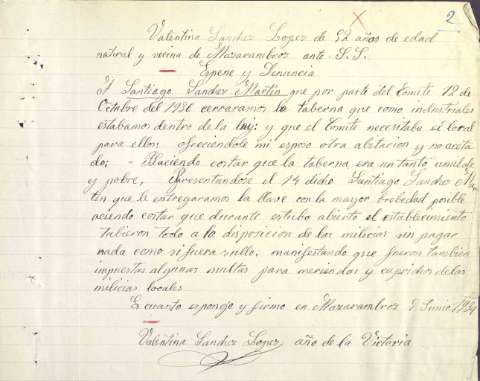 2
Valentina Sandez Lopez de 52 años de edad
natural y vecina de Mazarambroz ante S.S.
Espone y Denuncia
A Santiago Sandez Martin que por parte del Comite 12 de
Octubre del 1936 cerraramos la taberna que como industriales
estabamos dentro de la ley: y que el Comite necesitaba el local
para ellos; ofreciendole mi esposo otra abitacion y no aceta
do; - Haciendo costar que la taberna era un tanto umilde
y pobre, Presentandose el 14 dicho Santiago Sandez Mar
tin que le entregaramos la llave con la mayor brebedad posible
aciendo costar que durante estubo abierto el establecimiento
tubieron todo a la disposicion de las milicias sin pagar
nada como si fuera sullo, manifestando que fueron tambien
impuestas algunas multas para meriendas y caprichos de las
milicias locales
Es cuanto esponejo y firmo en Mazarambroz 9 Junio 1939
Valentina Sandez Lopez año de la Victoria